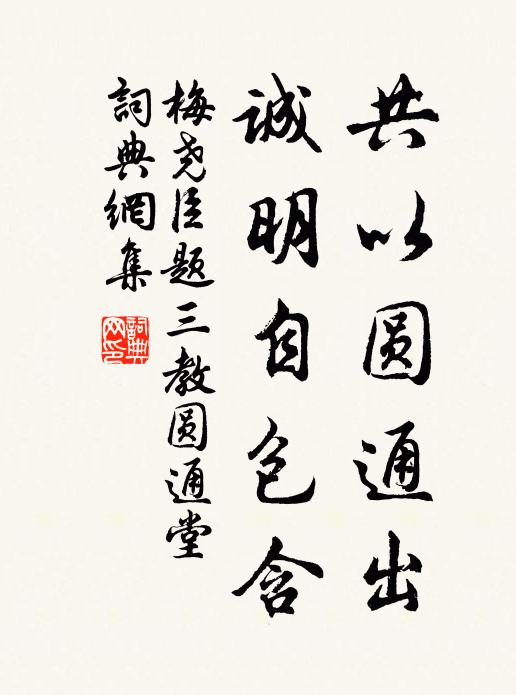 共以圆通出
诚明自包含
梅尧臣题三教圆通堂
词典網集
詞典
网印